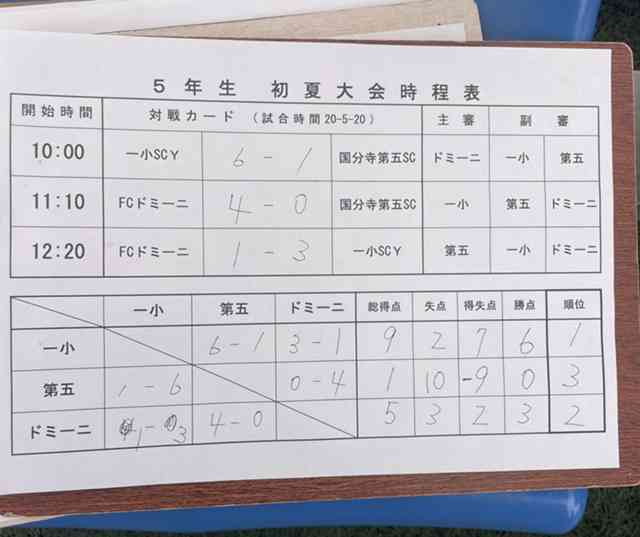 5年生 初夏大会時程表
開始時間 対戦カード (試合時間20-5-20) 主審 副審
10:00 一小SCY 6 - 1 国分寺第五SC ドミーニ 一小 第五
11:10 FCドミーニ 4 - 0 国分寺第五SC 一小 第五 ドミーニ
12:20 FCドミーニ 1 - 3 一小SCY 第五 一小 ドミーニ
一小 第五 ドミーニ 総得点 失点 得失点 勝点 順位
一小 6 - 1 3 - 1 9 2 7 6 1
第五 1 - 6 0 - 4 1 10 -9 0 3
ドミーニ 1 - 3 4 - 0 5 3 2 3 2